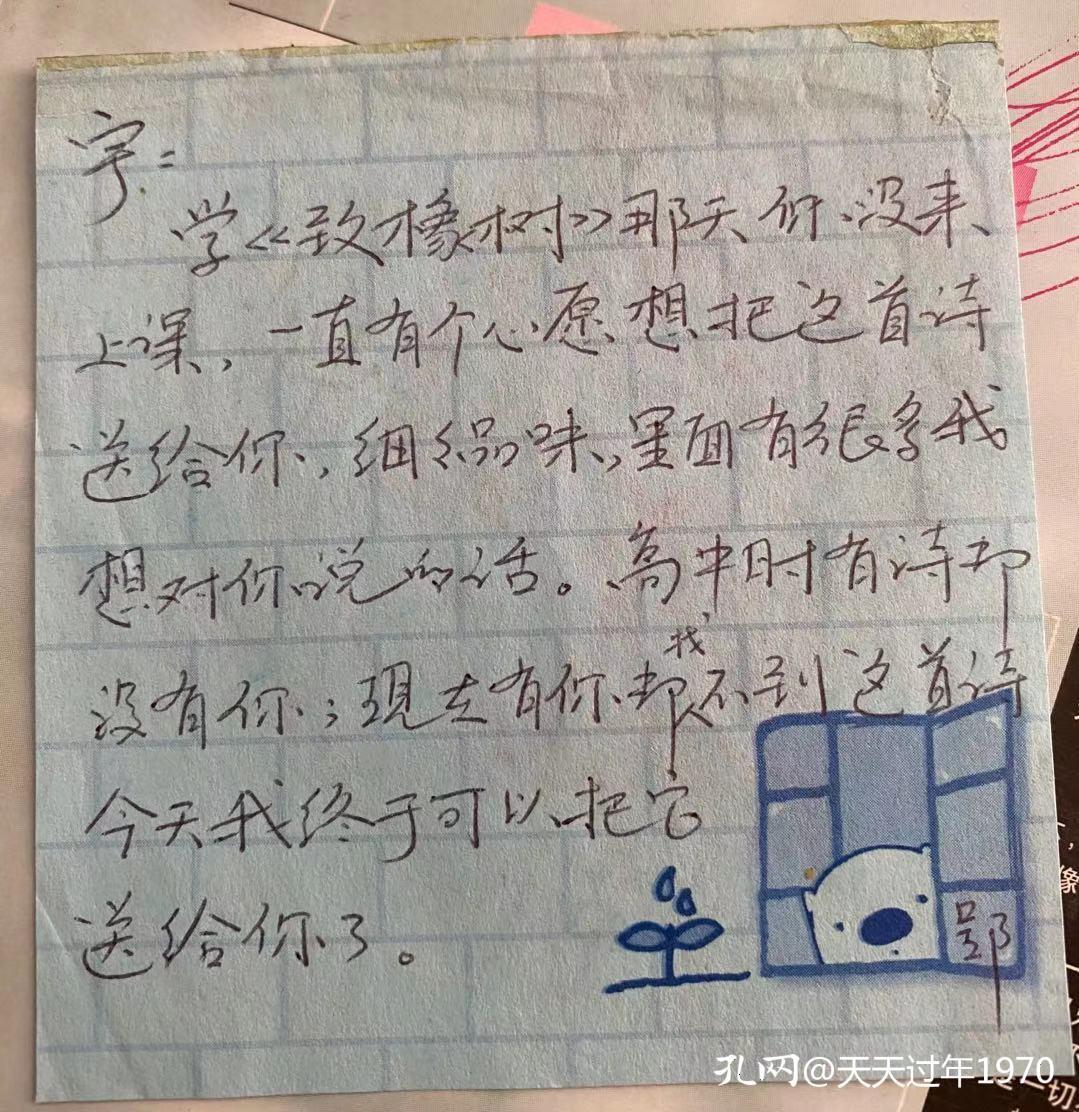 宇：
学《致橡树》那天你没来
上课，一直有个心愿想把这首诗
送给你，细々品味，里面有很多我
想对你说的话。高中时有诗却
没有你；现在有你却找不到这首诗
今天我终于可以把它
送给你了。
郢
孔网@天天过年1970
像
一切